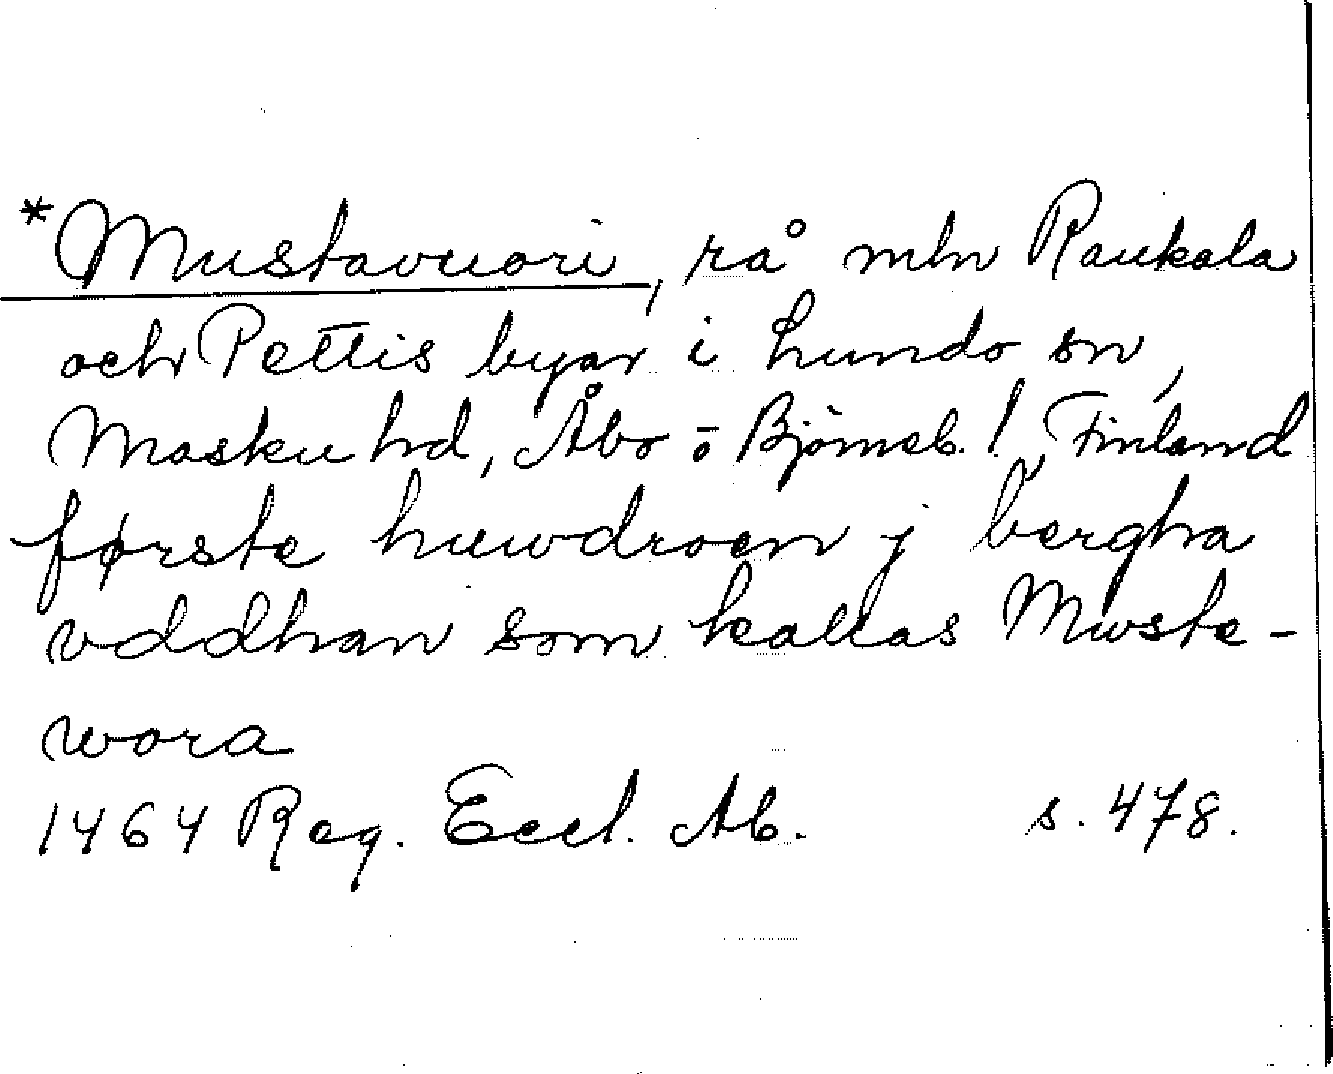 *Mustavuori, rå mln Raukala
och Pettis byar i Lundo sn,
Masku hd, Åbo ō Björneb. l, Finland
første huwdroen j bergha
vddhan som kallas Mwste-
wora
1464 Reg. Eccl. Ab. s. 478.